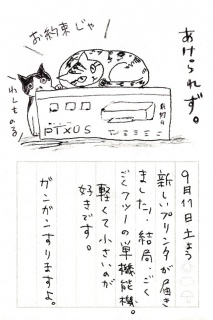 あけられず。
お約束じゃ!
わしものる
PIXUS
9月11日土よう
新しいプリンタが届き
ました!結局、ごく
ごくフツーの単機能機。
軽くて小さいのが
好きです。
ガンガンすりますよ。